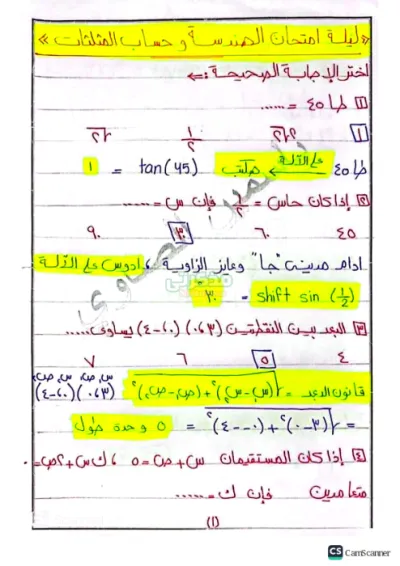 «ليلة امتحان الهندسة وحساب المثلثات»
اختر الإجابة الصحيحة :
١ طا ٤٥ = ......
١ ٢√٢ ١/٢ √٢
طا ٤٥ على الآلة ← نكتب tan(45) = ١
٢ إذا كان حاس = ١/٢ فإن س = ......
٤٥ ٦٠ ٣٠ ٩٠
ادام مدينى "جا" وعايز الزاوية، ادوس على الآلة
shift sin (1/2) = ٣٠
٣ البعد بين النقطتين (٠،٣) (٠،-٤) يساوى......
٤ ٥ ٦ ٧
قانون البعد = √(س-س)²+(ص-ص)²
= √(٣-٠)²+(٠--٤)² = ٥ وحدة طول
٤ إذا كان المستقيمان س+ص=٥ ، ك س+٢ص=
متعامدين فإن ك = ......
(١)
CS CamScanner